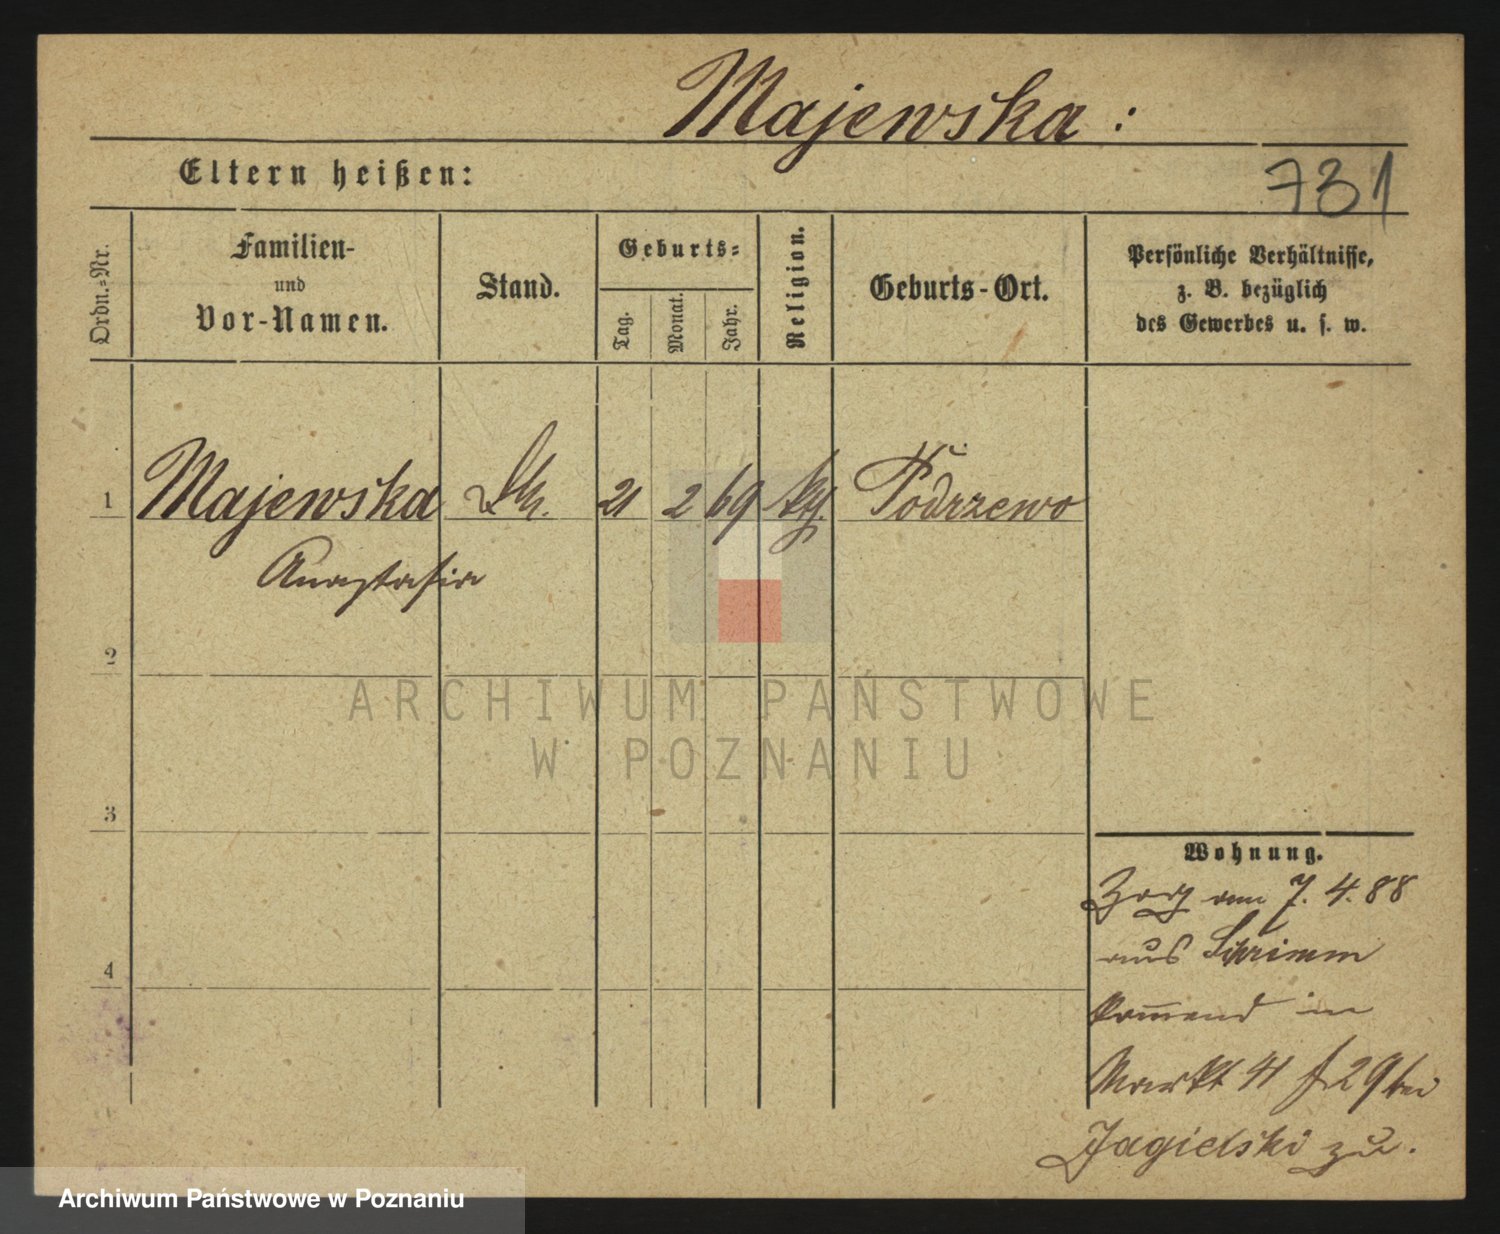 Majewska :
Eltern heißen:
731
Ordn.-Nr.
Familien-
und
Vor-Namen.
Stand.
Geburts-
Tag.
Monat.
Jahr.
Religion.
Geburts-Ort.
Persönliche Verhältnisse,
z. B. bezüglich
des Gewerbes u. s. w.
1 Majewska 21 2 69 Podrzewo
Anastasia
2
ARCHIWUM PAŃSTWOWE
W POZNANIU
3
Wohnung.
Zog am 7. 4. 88
aus Schrimm
4
kom̅end in
Markt 41 bei
Jagielski zu.
Archiwum Państwowe w Poznaniu